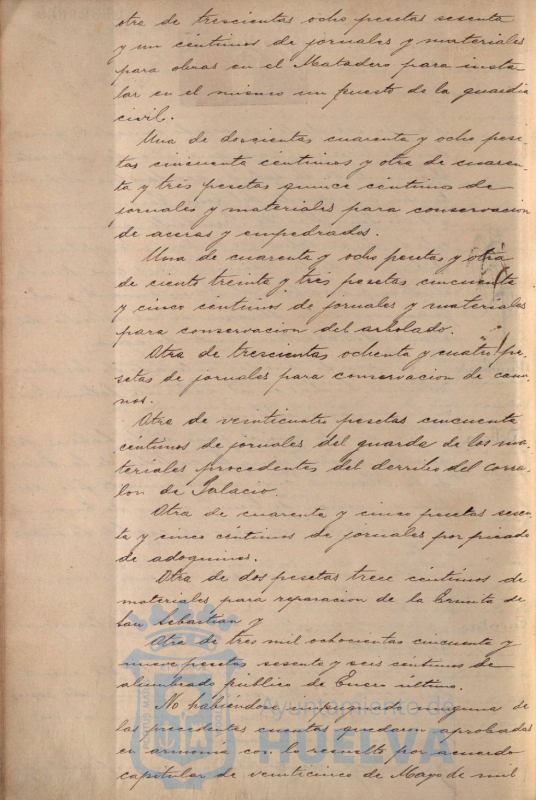 otra de trescientas ocho pesetas sesenta
y un céntimos de jornales y materiales
para obras en el Matadero para insta
lar en el mismo un puesto de la guardia
civil.
Una de doscientas cuarenta y ocho pese-
tas cincuenta centimos y otra de cuaren-
ta y tres pesetas quince céntimos de
jornales y materiales para conservacion
de aceras y empedrados.
Una de cuarenta y ocho pesetas y otra
de ciento treinta y tres pesetas cincuenta
y cinco céntimos de jornales y materiales
para conservacion del arbolado.
Otra de trescientas ochenta y cuatro pe-
setas de jornales para conservacion de cami-
nos.
Otra de veinticuatro pesetas cincuenta
céntimos de jornales del guarda de los ma-
teriales procedentes del derribo del corra-
lon de Palacio.
Otra de cuarenta y cinco pesetas sesen-
ta y cinco céntimos de jornales por picado
de adoquines.
Otra de dos pesetas trece céntimos de
materiales para reparacion de la Ermita de
San Sebastian y
Otra de tres mil ochocientas cincuenta y
nueve pesetas sesenta y seis céntimos de
alumbrado público de Enero último.
No habiéndose impugnado ninguna de
las precedentes cuentas quedaron aprobadas
en armonia con lo resuelto por acuerdo
capitular de veinticinco de Mayo de mil
Ayuntamiento de
HUELVA